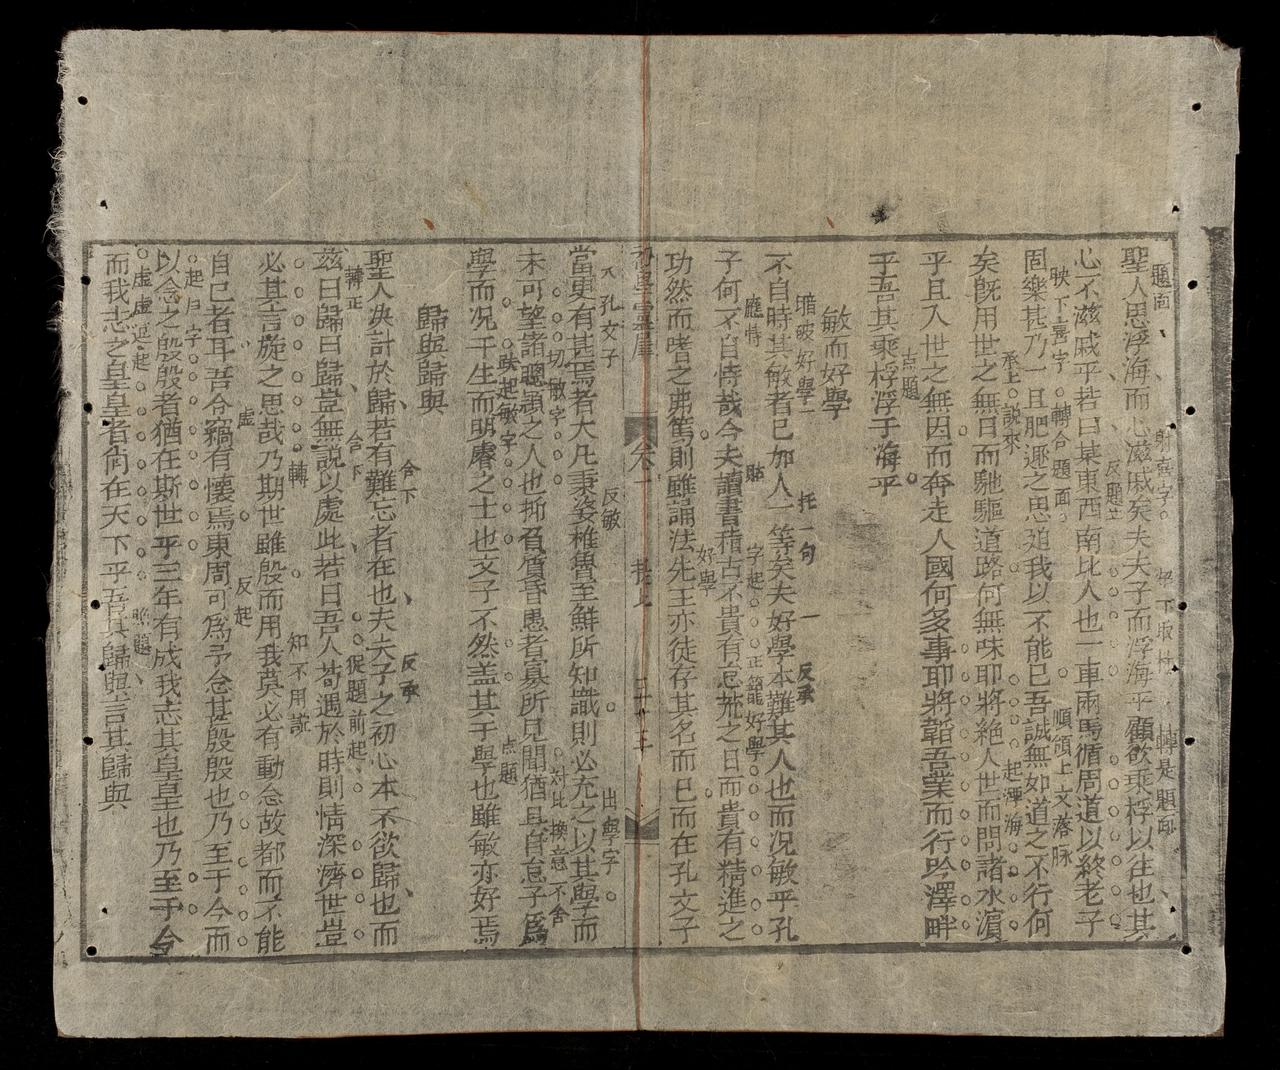 聖人思浮海而心滋戚矣夫夫子而浮海乎顧欲乘桴以往也其
題面
轉是題面
心不滋戚乎若曰某東西南北人也一車兩馬循周道以終老子
反題
固樂甚乃一旦肥遯之思迫我以不能已吾誠無如道之不行何
映下喜字
轉合題面
順領上文落脉
矣旣用世之無日而馳驅道路何無味耶將絶人世而問諸水濵
承上說來
起浮海
乎且入世之無因而奔走人國何多事耶將韜吾業而行吟澤畔
乎吾其乘桴浮于海乎
点題
敏而好學
不自恃其敏者已加人一等矣夫好學本難其人也而况敏乎孔
暗破好學
托一句
反承
子何不自恃哉今夫讀書稽古不貴有怠荒之日而貴有精進之
應恃
貼
字起
正籠好學
功然而嗜之弗篤則雖誦法先王亦徒存其名而已而在孔文子
好學
卷一
當更有甚焉者大凡秉姿椎魯至鮮所知識則必充之以其學而
入孔文子
反敏
出學字
未可望諸聰頴之人也折負質昏愚者寡所見聞猶且自怠于爲
切敏字
對比換意不舍
學而况千生而明睿之士也文子不然盖其于學也雖敏亦好焉
跌起敏字
点題
歸與歸與
聖人决計於歸若有難忘者在也夫夫子之初心本不欲歸也而
合下
反承
兹曰歸曰歸豈無說以處此若曰吾人苟遇於時則情深濟世豈
轉正
合下
從題前起
必其言旋之思哉乃期世雖殷而用我莫必有動念故都而不能
轉
知不用說
自已者耳吾今竊有懷焉東周可爲予念甚殷殷也乃至于今而
虚
反起
以念之殷殷者猶在斯世乎三年有成我志其皇皇也乃至于今
起戶字
而我志之皇皇者尙在天下乎吾其歸與言其歸與
虚虚逗起
照題